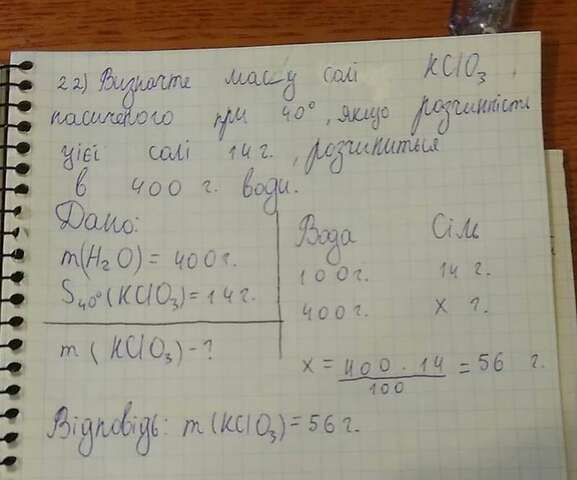 22) Визначте масу солі KClO₃,
насиченого при 40°, якщо розчинність
цієї солі 14 г., розчиниться
в 400 г. води.
Дано:
m(H₂O) = 400 г.
S₄₀°(KClO₃) = 14 г.
m (KClO₃) - ?
Вода Сіль
100 г. 14 г.
400 г. x г.
x = 400 · 14 / 100 = 56 г.
Відповідь: m(KClO₃) = 56 г.